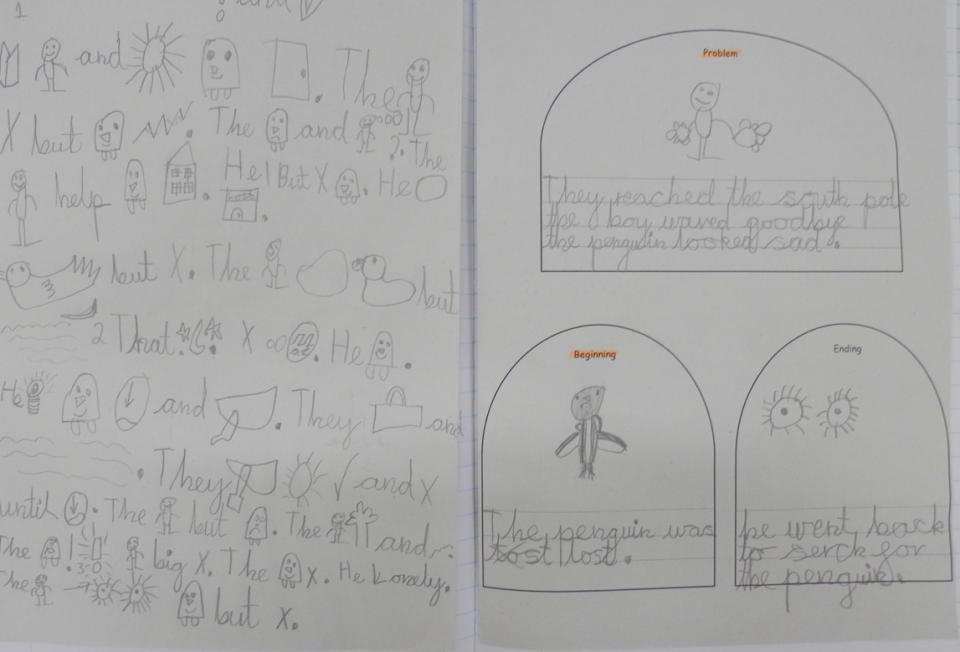 1
and
and
. The
X but . The and ? the
help . He! But X . He
.
but X. The but
2 That . X . He .
He and . They and
. They ✓ and X
until . The but . The and
The ! big X. The x. He Lonely.
The
but x.
Problem
They reached the south pole
the boy waved goodbye
the penguin looked sad.
Beginning
The penguin was
lost.
Ending
he went back
to serch for
the penguin.